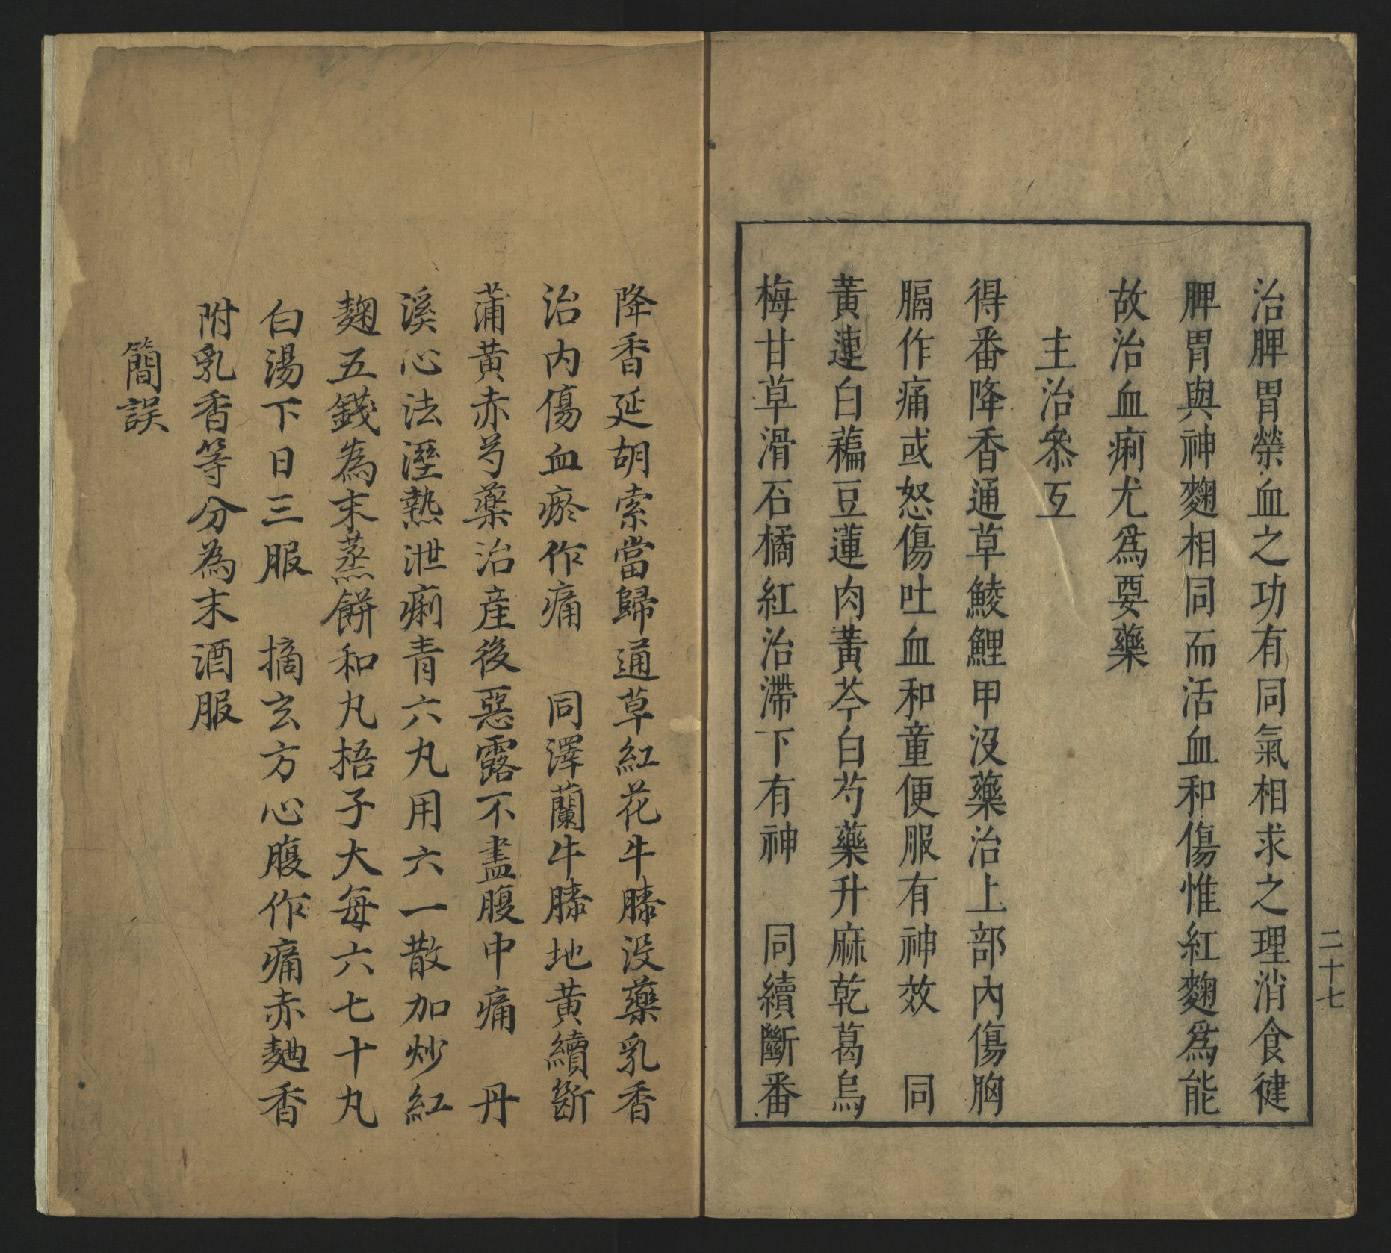 治脾胃榮血之功有同氣相求之理消食健
脾胃與神麴相同而活血和傷惟紅麴爲能
故治血痢尤爲要藥
主治叅互
得番降香通草鯪鯉甲没藥治上部內傷胸
膈作痛或怒傷吐血和童便服有神效　同
黃連白藊豆蓮肉黃芩白芍藥升麻乾葛烏
梅甘草滑石橘紅治滯下有神　同續斷番
二十七
降香延胡索當歸通草紅花牛膝没藥乳香
治内傷血瘀作痛　同澤蘭牛膝地黄續斷
蒲黄赤芍藥治産後惡露不盡腹中痛　丹
溪心法溼熱泄痢青六丸用六一散加炒紅
麹五錢為末蒸餅和丸梧子大每六七十丸
白湯下日三服　摘玄方心腹作痛赤麯香
附乳香等分為末酒服
簡誤